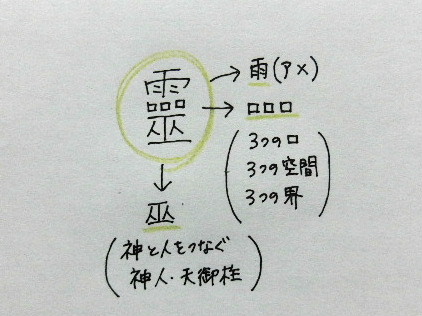 靈
雨(アメ)
口口口
(3つの口
3つの空間
3つの界)
巫
(神と人をつなぐ
神人・天御柱)